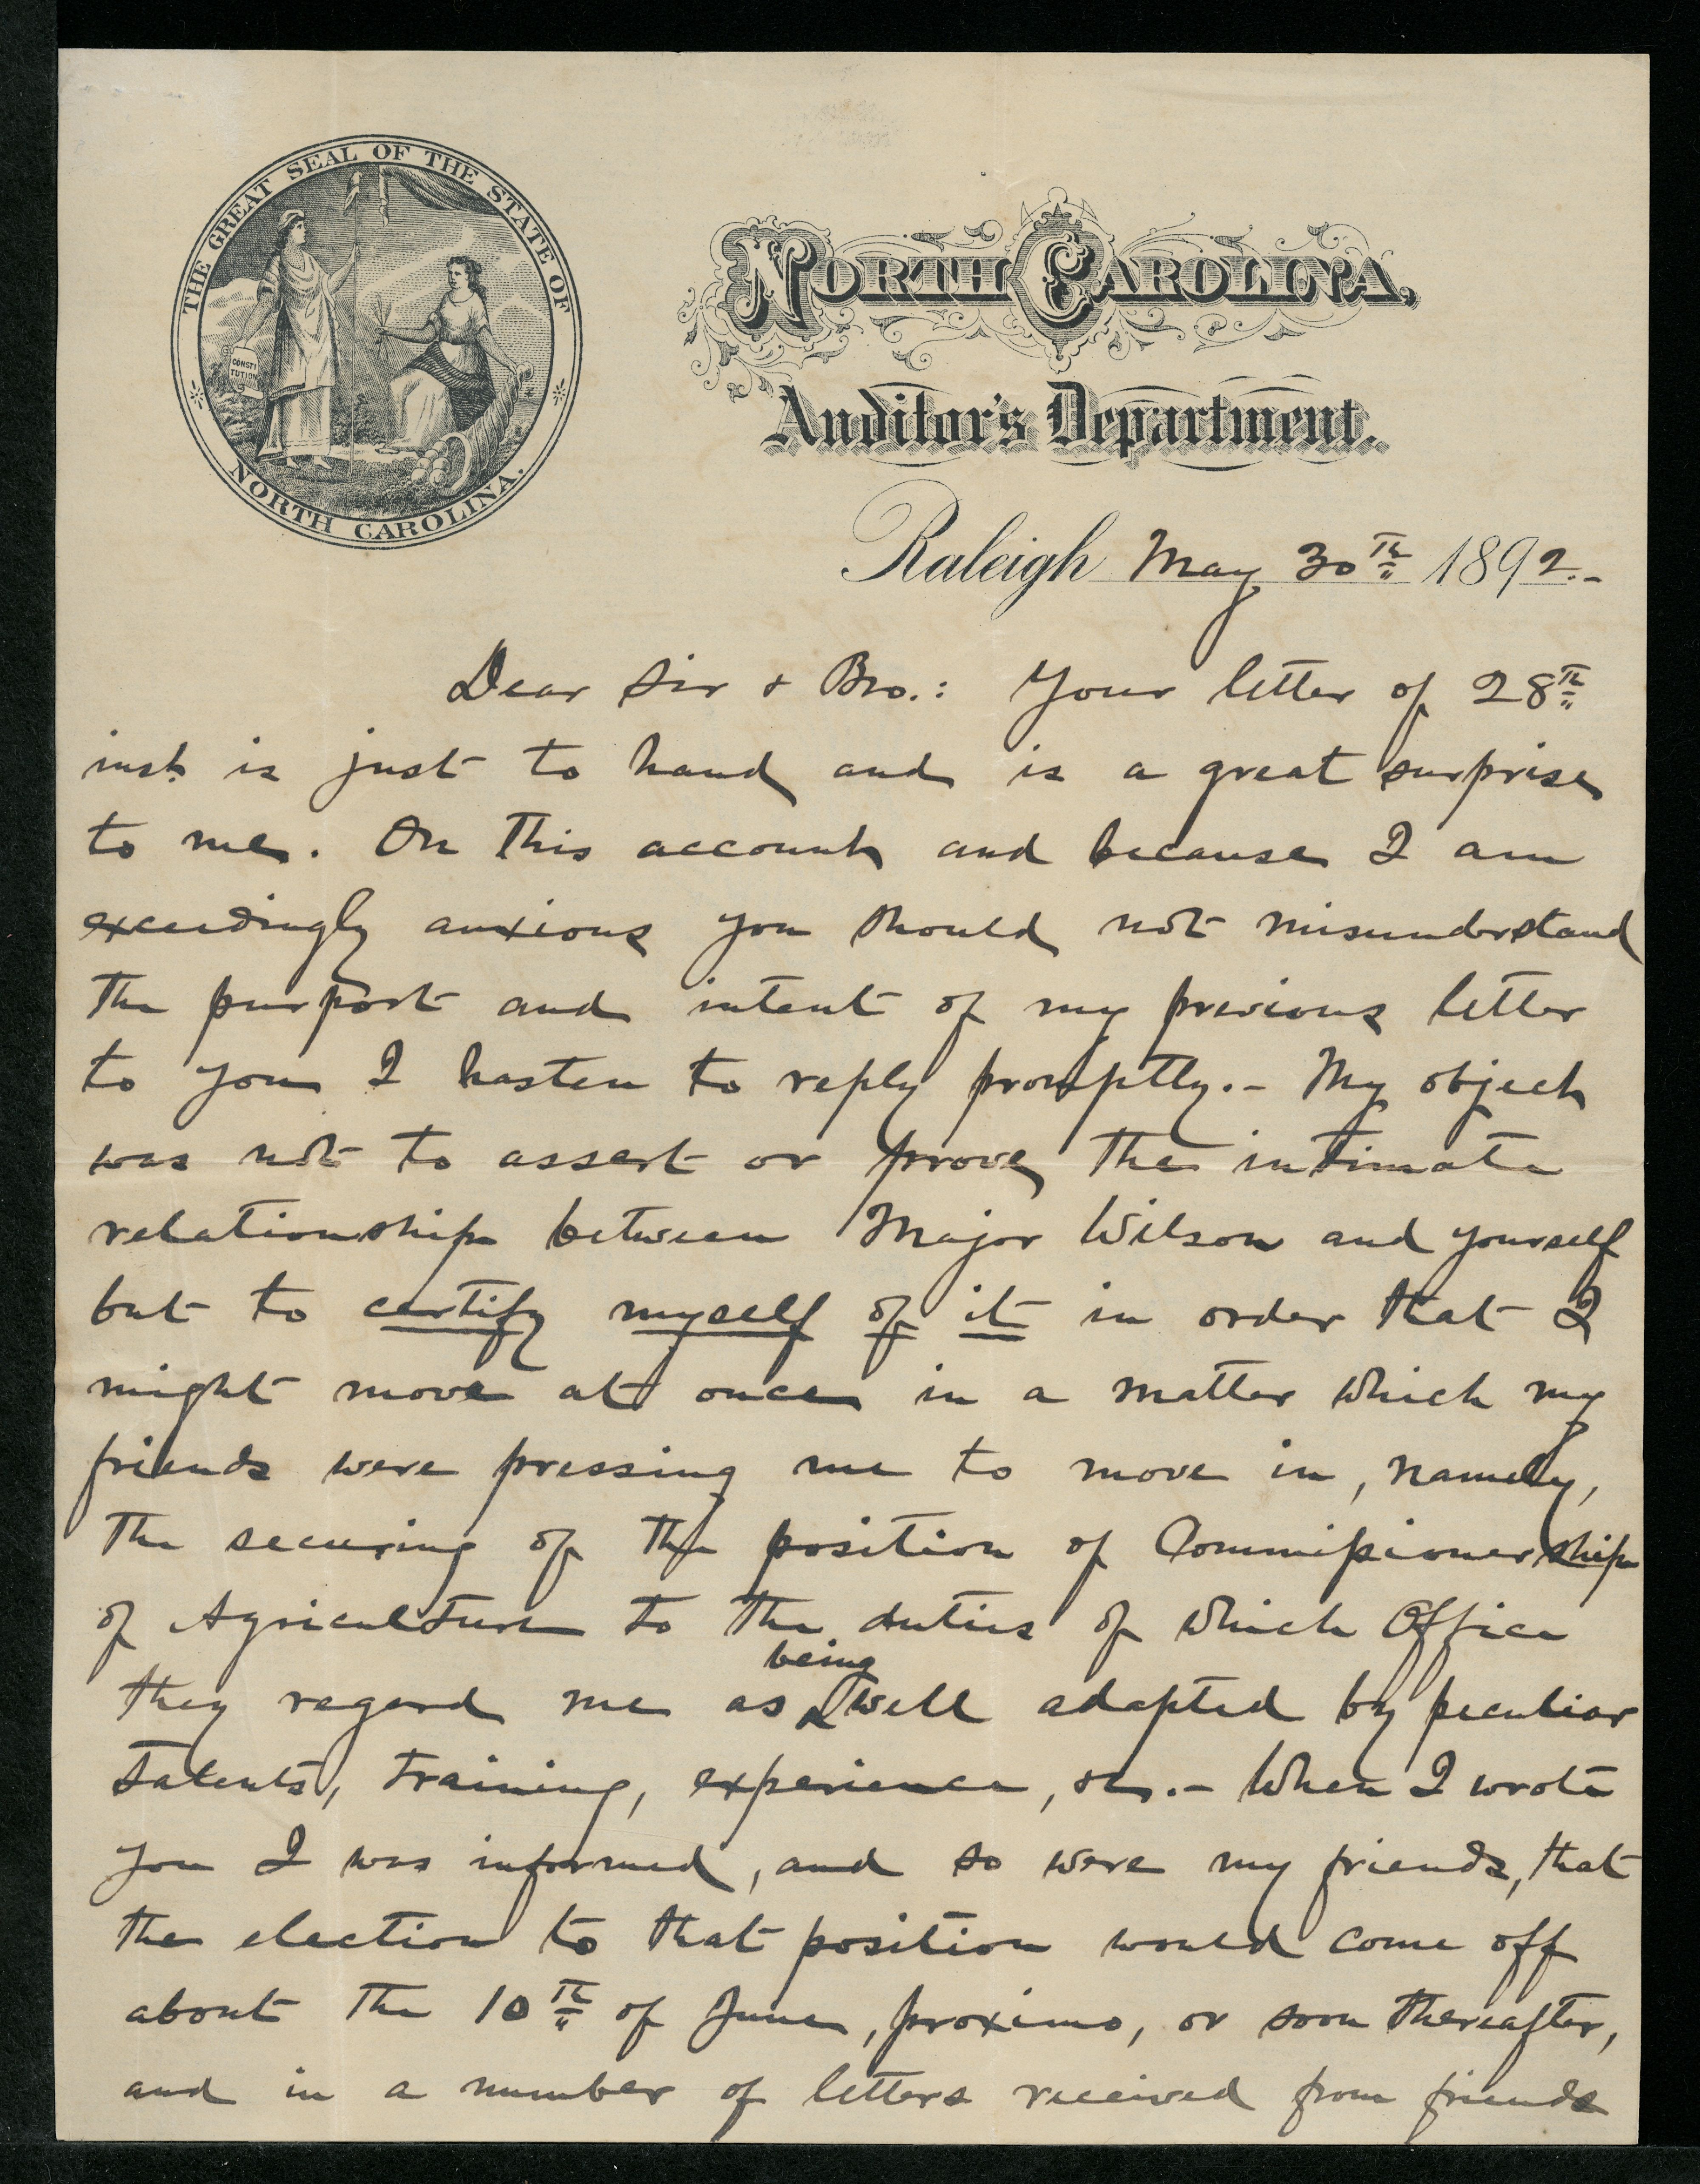 THE GREAT SEAL OF THE STATE OF NORTH CAROLINA.
CONSTI
TUTION
NORTH CAROLINA,
Auditor's Department.
Raleigh May 30th 1892.-
Dear Sir & Bro.: Your letter of 28th
inst. is just to hand and is a great surprise
to me. On this account and because I am
exceedingly anxious you should not misunderstand
the purport and intent of my previous letter
to you I hasten to reply promptly.- My object
was not to assert or prove the intimate
relationship between Major Wilson and yourself
but to certify myself of it in order that I
might move at once in a matter which my
friends were pressing me to move in, namely,
the securing of the position of Commissionership
of Agriculture to the duties of which Office
they regard me as being well adapted by peculiar
talents, training, experience, &c.- When I wrote
you I was informed, and so were my friends, that
the election to that position would come off
about the 10th of June, proximo, or soon thereafter,
and in a number of letters received from friends